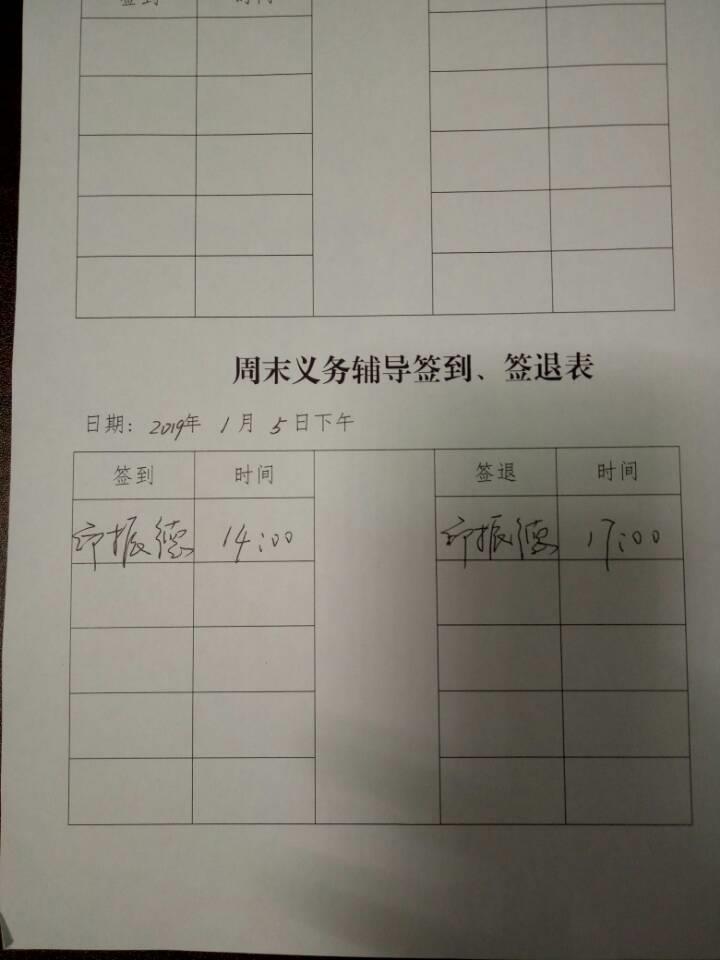 签到 时间
周末义务辅导签到、签退表
日期：2019年 1月 5日下午
签到 时间 签退 时间
邱振德 14:00 邱振德 17:00